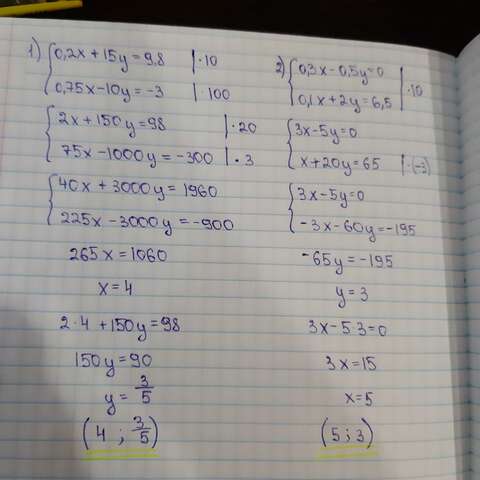 1) { 0,2x + 15y = 9,8 | · 10
0,75x - 10y = -3 | · 100
{ 2x + 150y = 98 | · 20
75x - 1000y = -300 | · 3
{ 40x + 3000y = 1960
225x - 3000y = -900
265x = 1060
x = 4
2 · 4 + 150y = 98
150y = 90
y = 3/5
(4 ; 3/5)
2) { 0,3x - 0,5y = 0
0,1x + 2y = 6,5 | · 10
{ 3x - 5y = 0
x + 20y = 65 | · (-3)
{ 3x - 5y = 0
-3x - 60y = -195
-65y = -195
y = 3
3x - 5·3 = 0
3x = 15
x = 5
(5 ; 3)